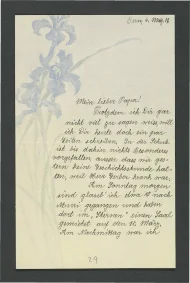 Bern 4. März 18
Mein lieber Papa!
Trotzdem ich Dir gar
nicht viel zu sagen weiss, will
ich Dir heute doch ein paar
Zeilen schreiben. In der Schule
ist bis dahin nichts besonderes
vorgefallen ausser dass wir ges-
tern keine Geschichtsstunde hat-
ten, weil Herr krank war.
Am Sonntag morgen
sind glaub ich etwa 18 nach
gegangen und haben
dort im „Sternen" einen Saal
gemietet auf den 11. März.
Am Nachmittag war ich
29